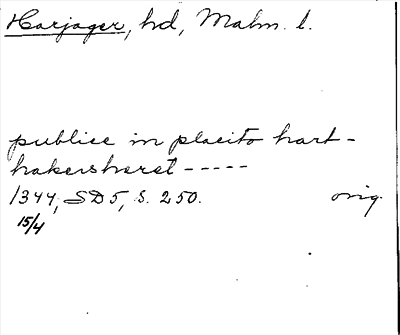 Harjager, hd, Malm. l.
publice in placito hart-
hakershæret -----
1344, SD5, S. 250. orig.
15/4